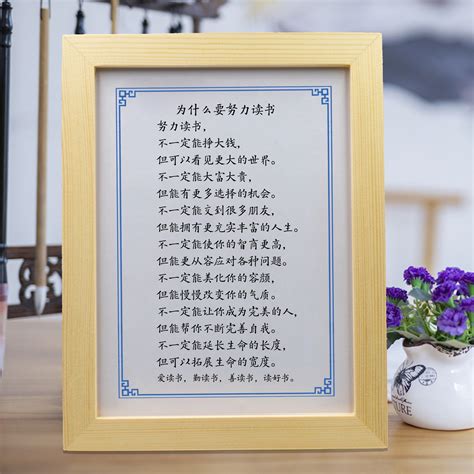 为什么要努力读书
努力读书，
不一定能挣大钱，
但可以看见更大的世界。
不一定能大富大贵，
但能有更多选择的机会。
不一定能交到很多朋友，
但能拥有更充实丰富的人生。
不一定能使你的智育更高，
但能更从容应对各种问题。
不一定能美化你的容颜，
但能慢慢改变你的气质。
不一定能让你成为完美的人，
但能帮你不断完善自我。
不一定能延长生命的长度，
但可以拓展生命的宽度。
爱读书，勤读书，善读书，读好书。